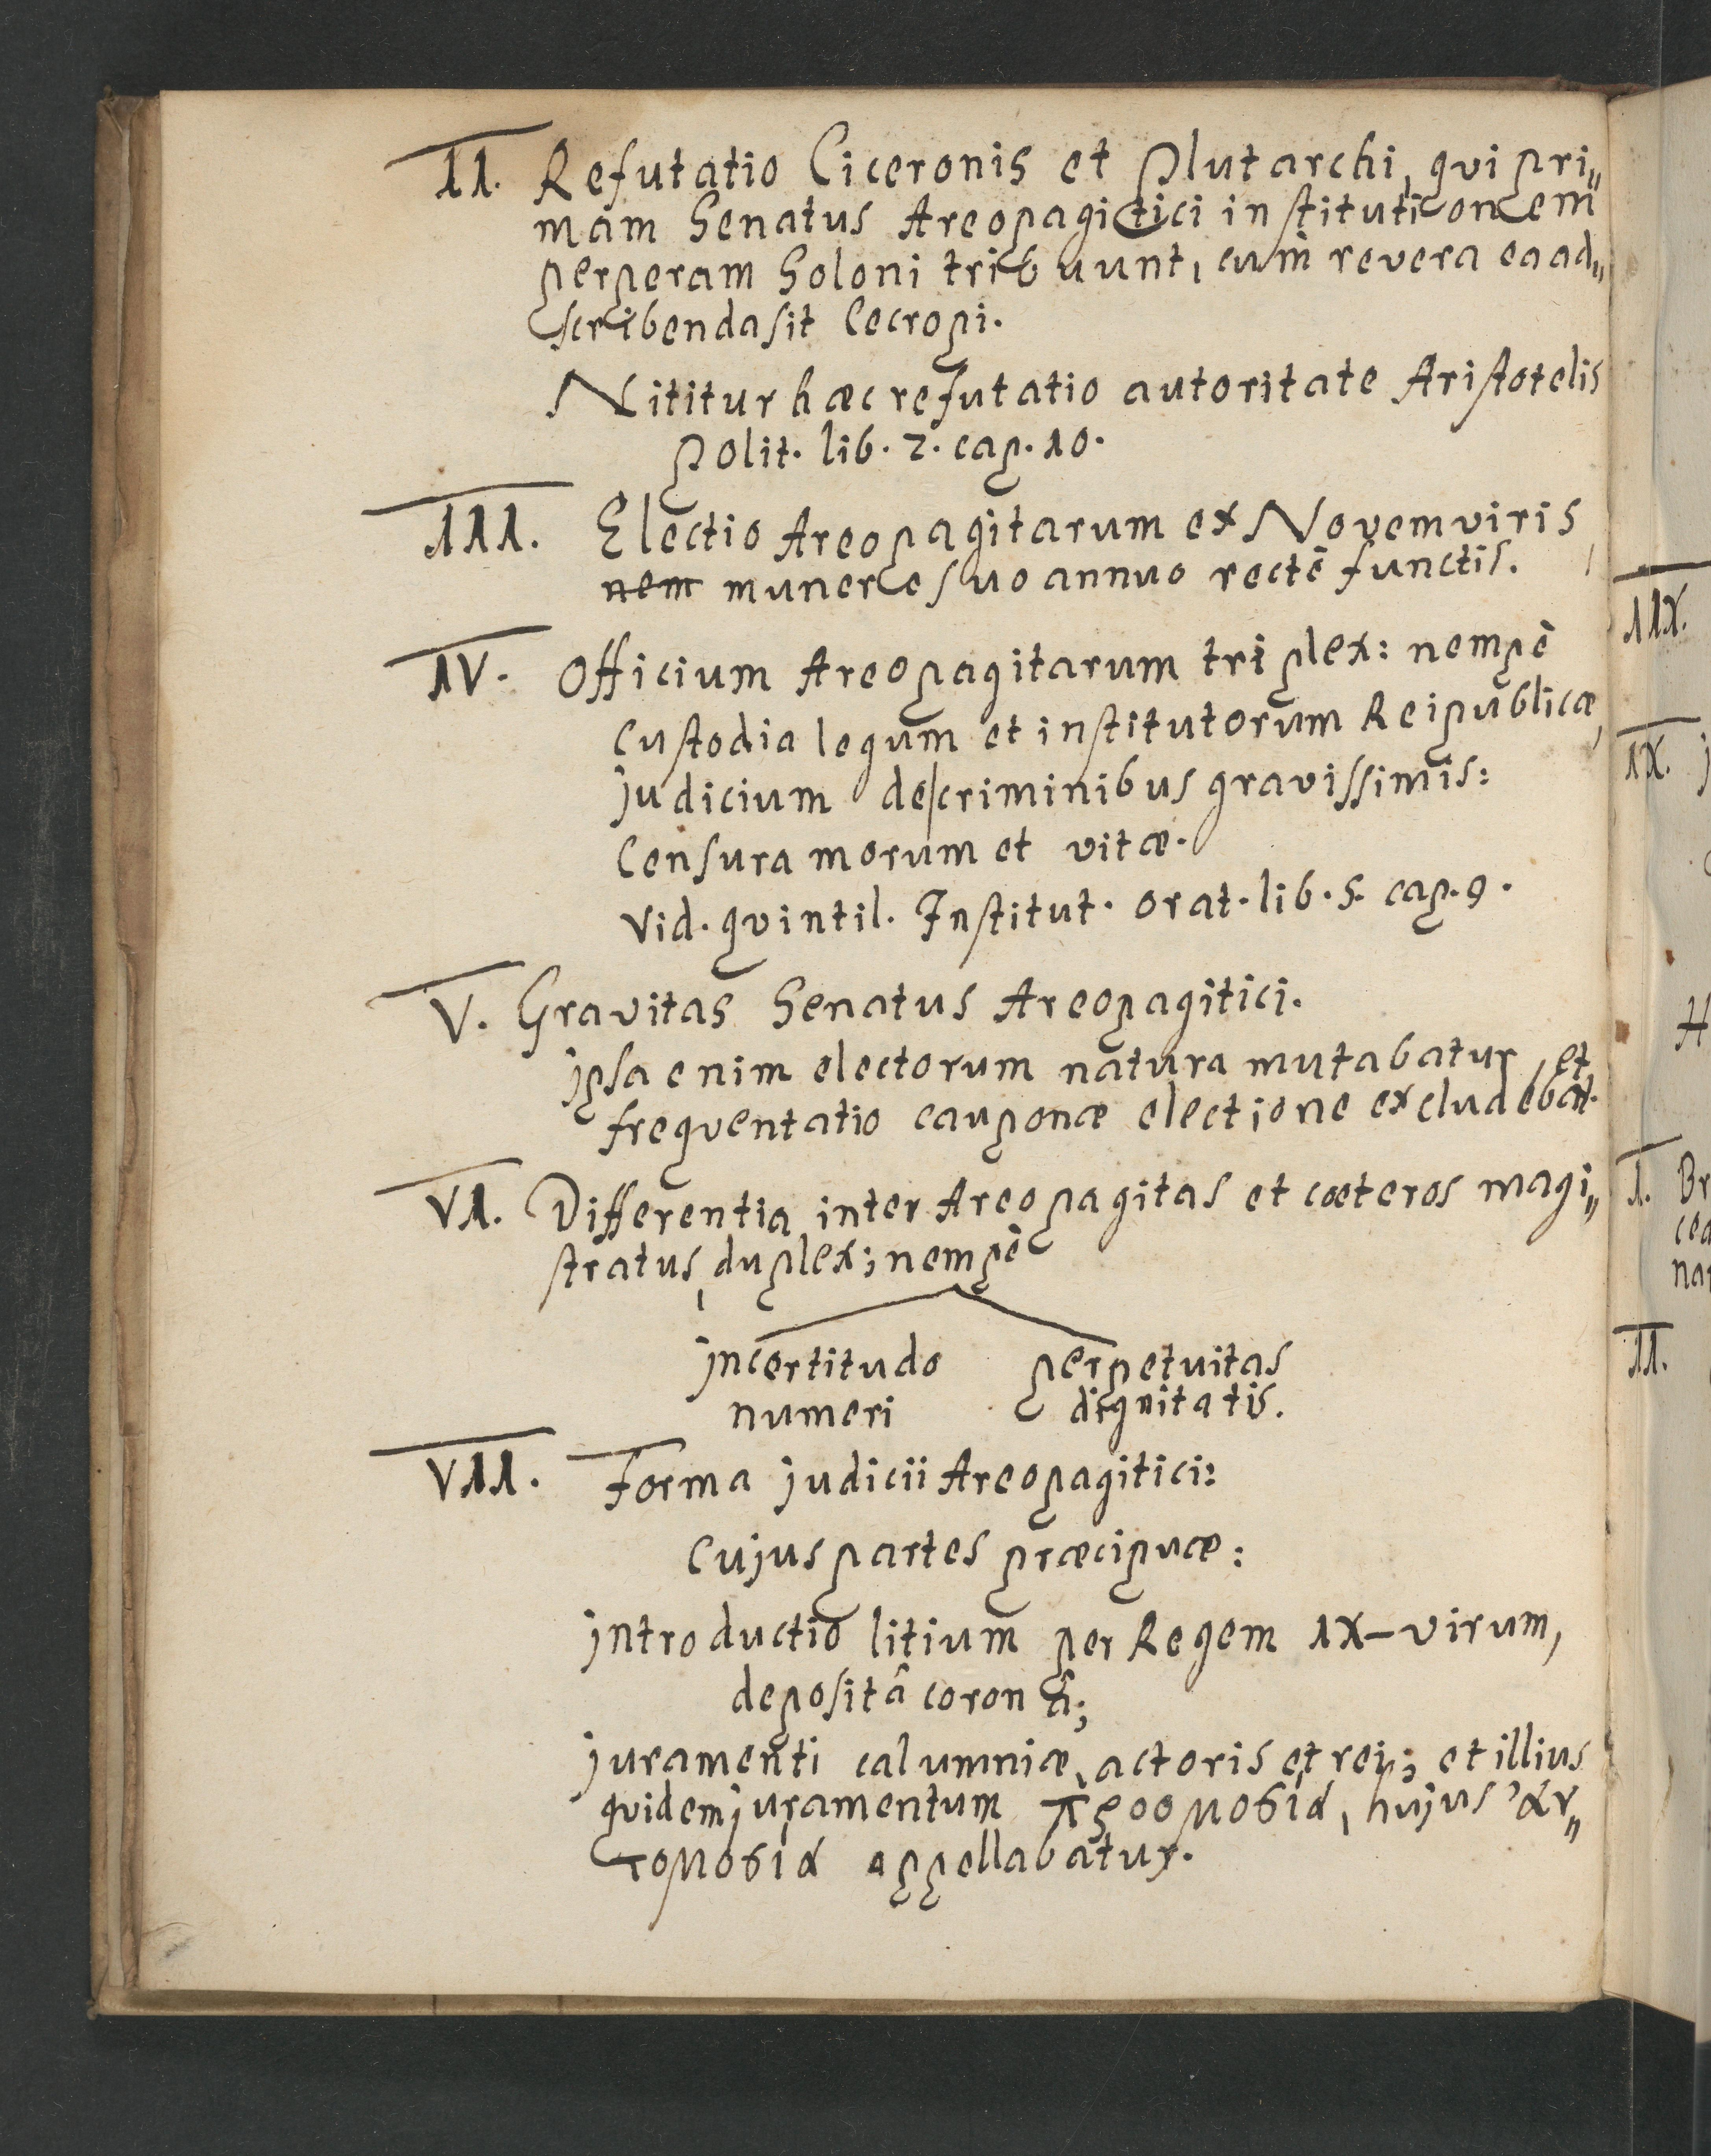 II. Refutatio Ciceronis et Plutarchi, qvi pri„
mam Senatus Areopagitici institutionem
perperam Soloni tribuunt, cum revera ea ad„
scribenda sit Cecropi.
Nititur hæc refutatio autoritate Aristotelis
Polit. lib. 2. cap. 10.
III. Electio Areopagitarum ex Novemviris,
nem munere suo annuo rectè functis.
IV. Officium Areopagitarum triplex: nempè
Custodia legum et institutorum Reipublicæ,
judicium de criminibus gravissimis:
Censura morum et vitæ.
Vid. qvintil. Institut. orat. lib. 5. cap. 9.
V. Gravitas Senatus Areopagitici.
ipsa enim electorum natura mutabatur, et
freqventatio cauponæ electione excludebat.
VI. Differentia inter Areopagitas et cæteros magi„
stratus, duplex; nempè
incertitudo perpetuitas
numeri dignitatis.
VII. Forma judicii Areopagitici:
Cujus partes præcipuæ:
introductio litium per Regem IX-virum,
depositâ coronâ;
juramenti calumniæ, actoris et rei; et illius
qvidem juramentum προομοσία, hujus ἀν„
τομοσία appellabatur.
IIX.
IX.
H
I. Br
cea
nar
II.